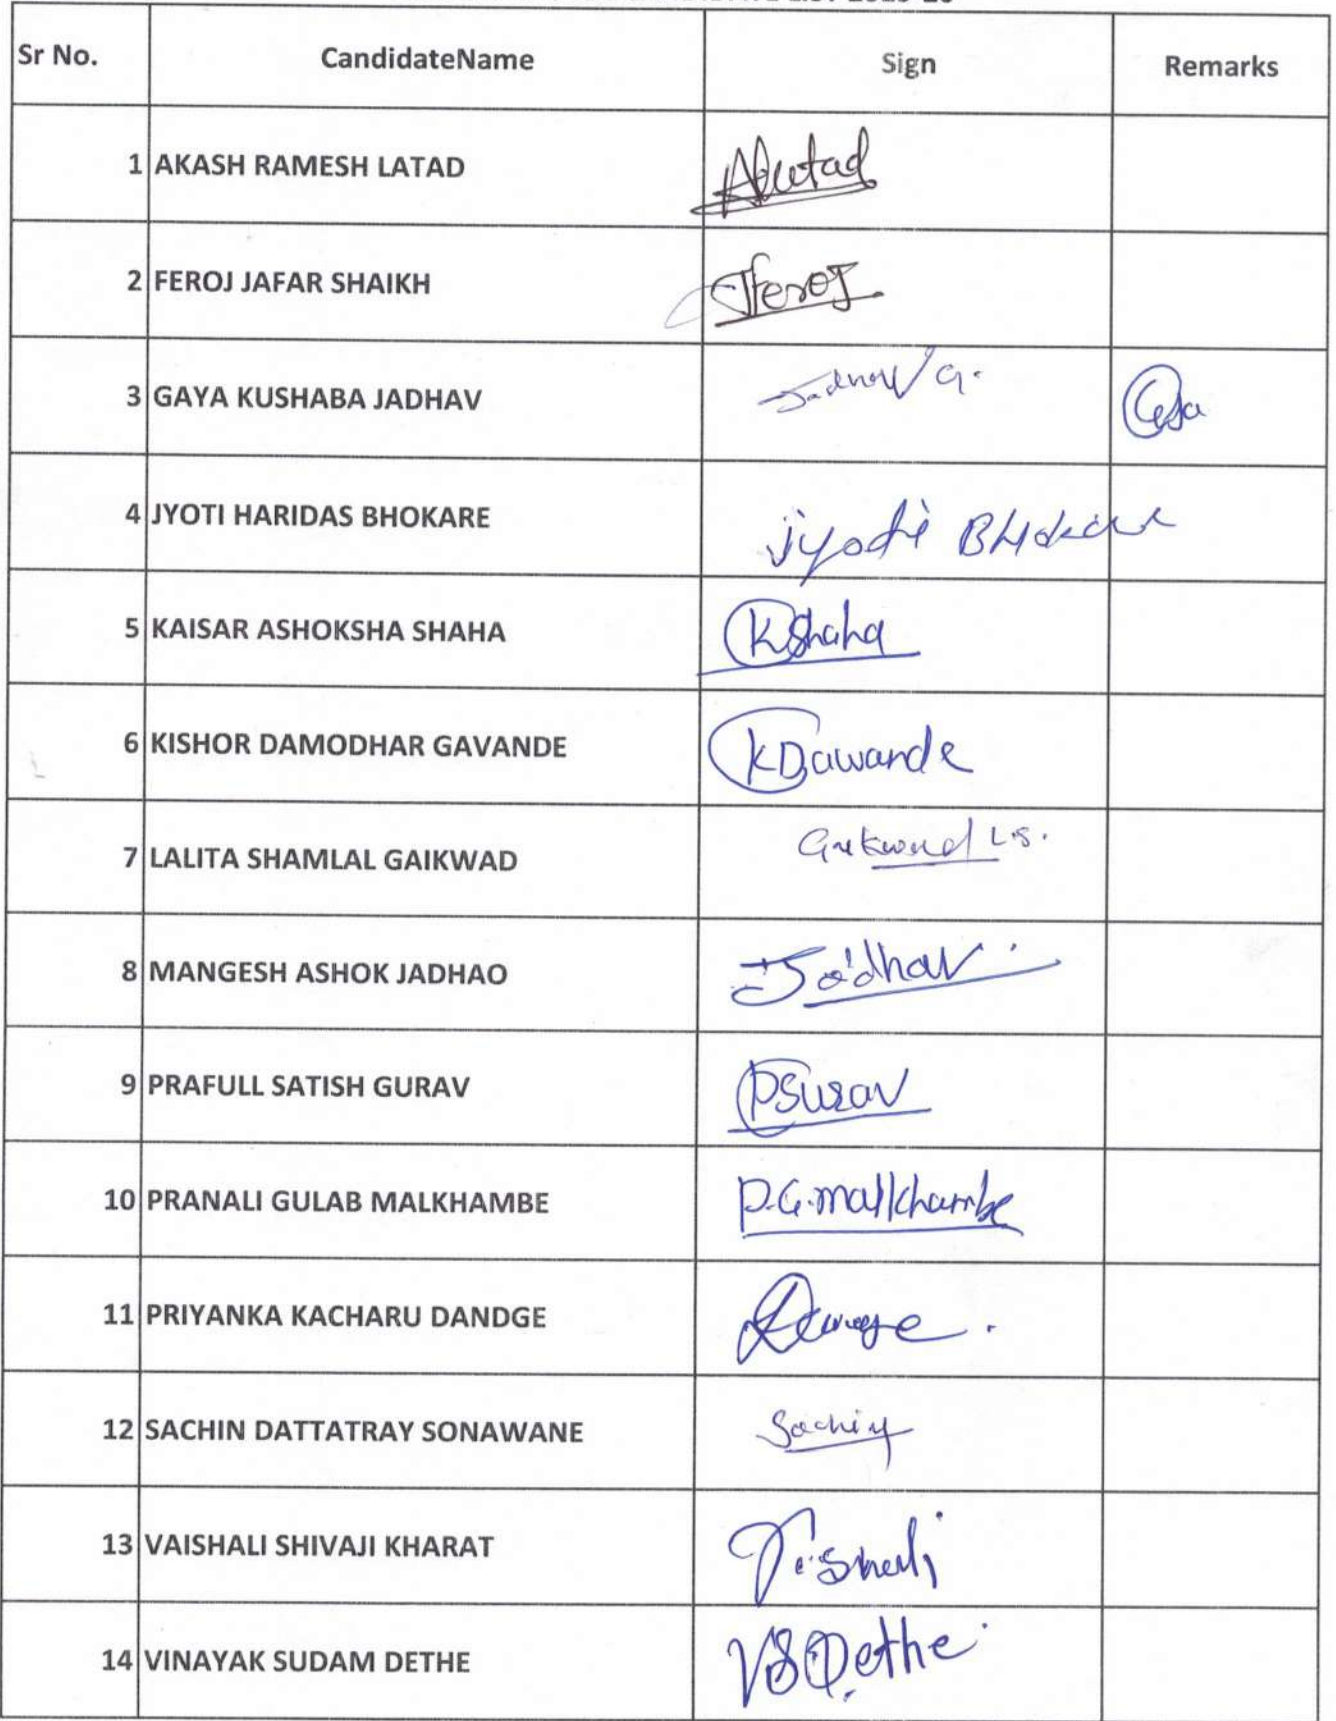 Sr No. CandidateName Sign Remarks
1 AKASH RAMESH LATAD
2 FEROJ JAFAR SHAIKH Feroj
3 GAYA KUSHABA JADHAV Jadhav G.
4 JYOTI HARIDAS BHOKARE
5 KAISAR ASHOKSHA SHAHA KShaha
6 KISHOR DAMODHAR GAVANDE
7 LALITA SHAMLAL GAIKWAD L.S.
8 MANGESH ASHOK JADHAO Jadhav
9 PRAFULL SATISH GURAV
10 PRANALI GULAB MALKHAMBE P.G.malkhambe
11 PRIYANKA KACHARU DANDGE
12 SACHIN DATTATRAY SONAWANE Sachin
13 VAISHALI SHIVAJI KHARAT
14 VINAYAK SUDAM DETHE VSDethe